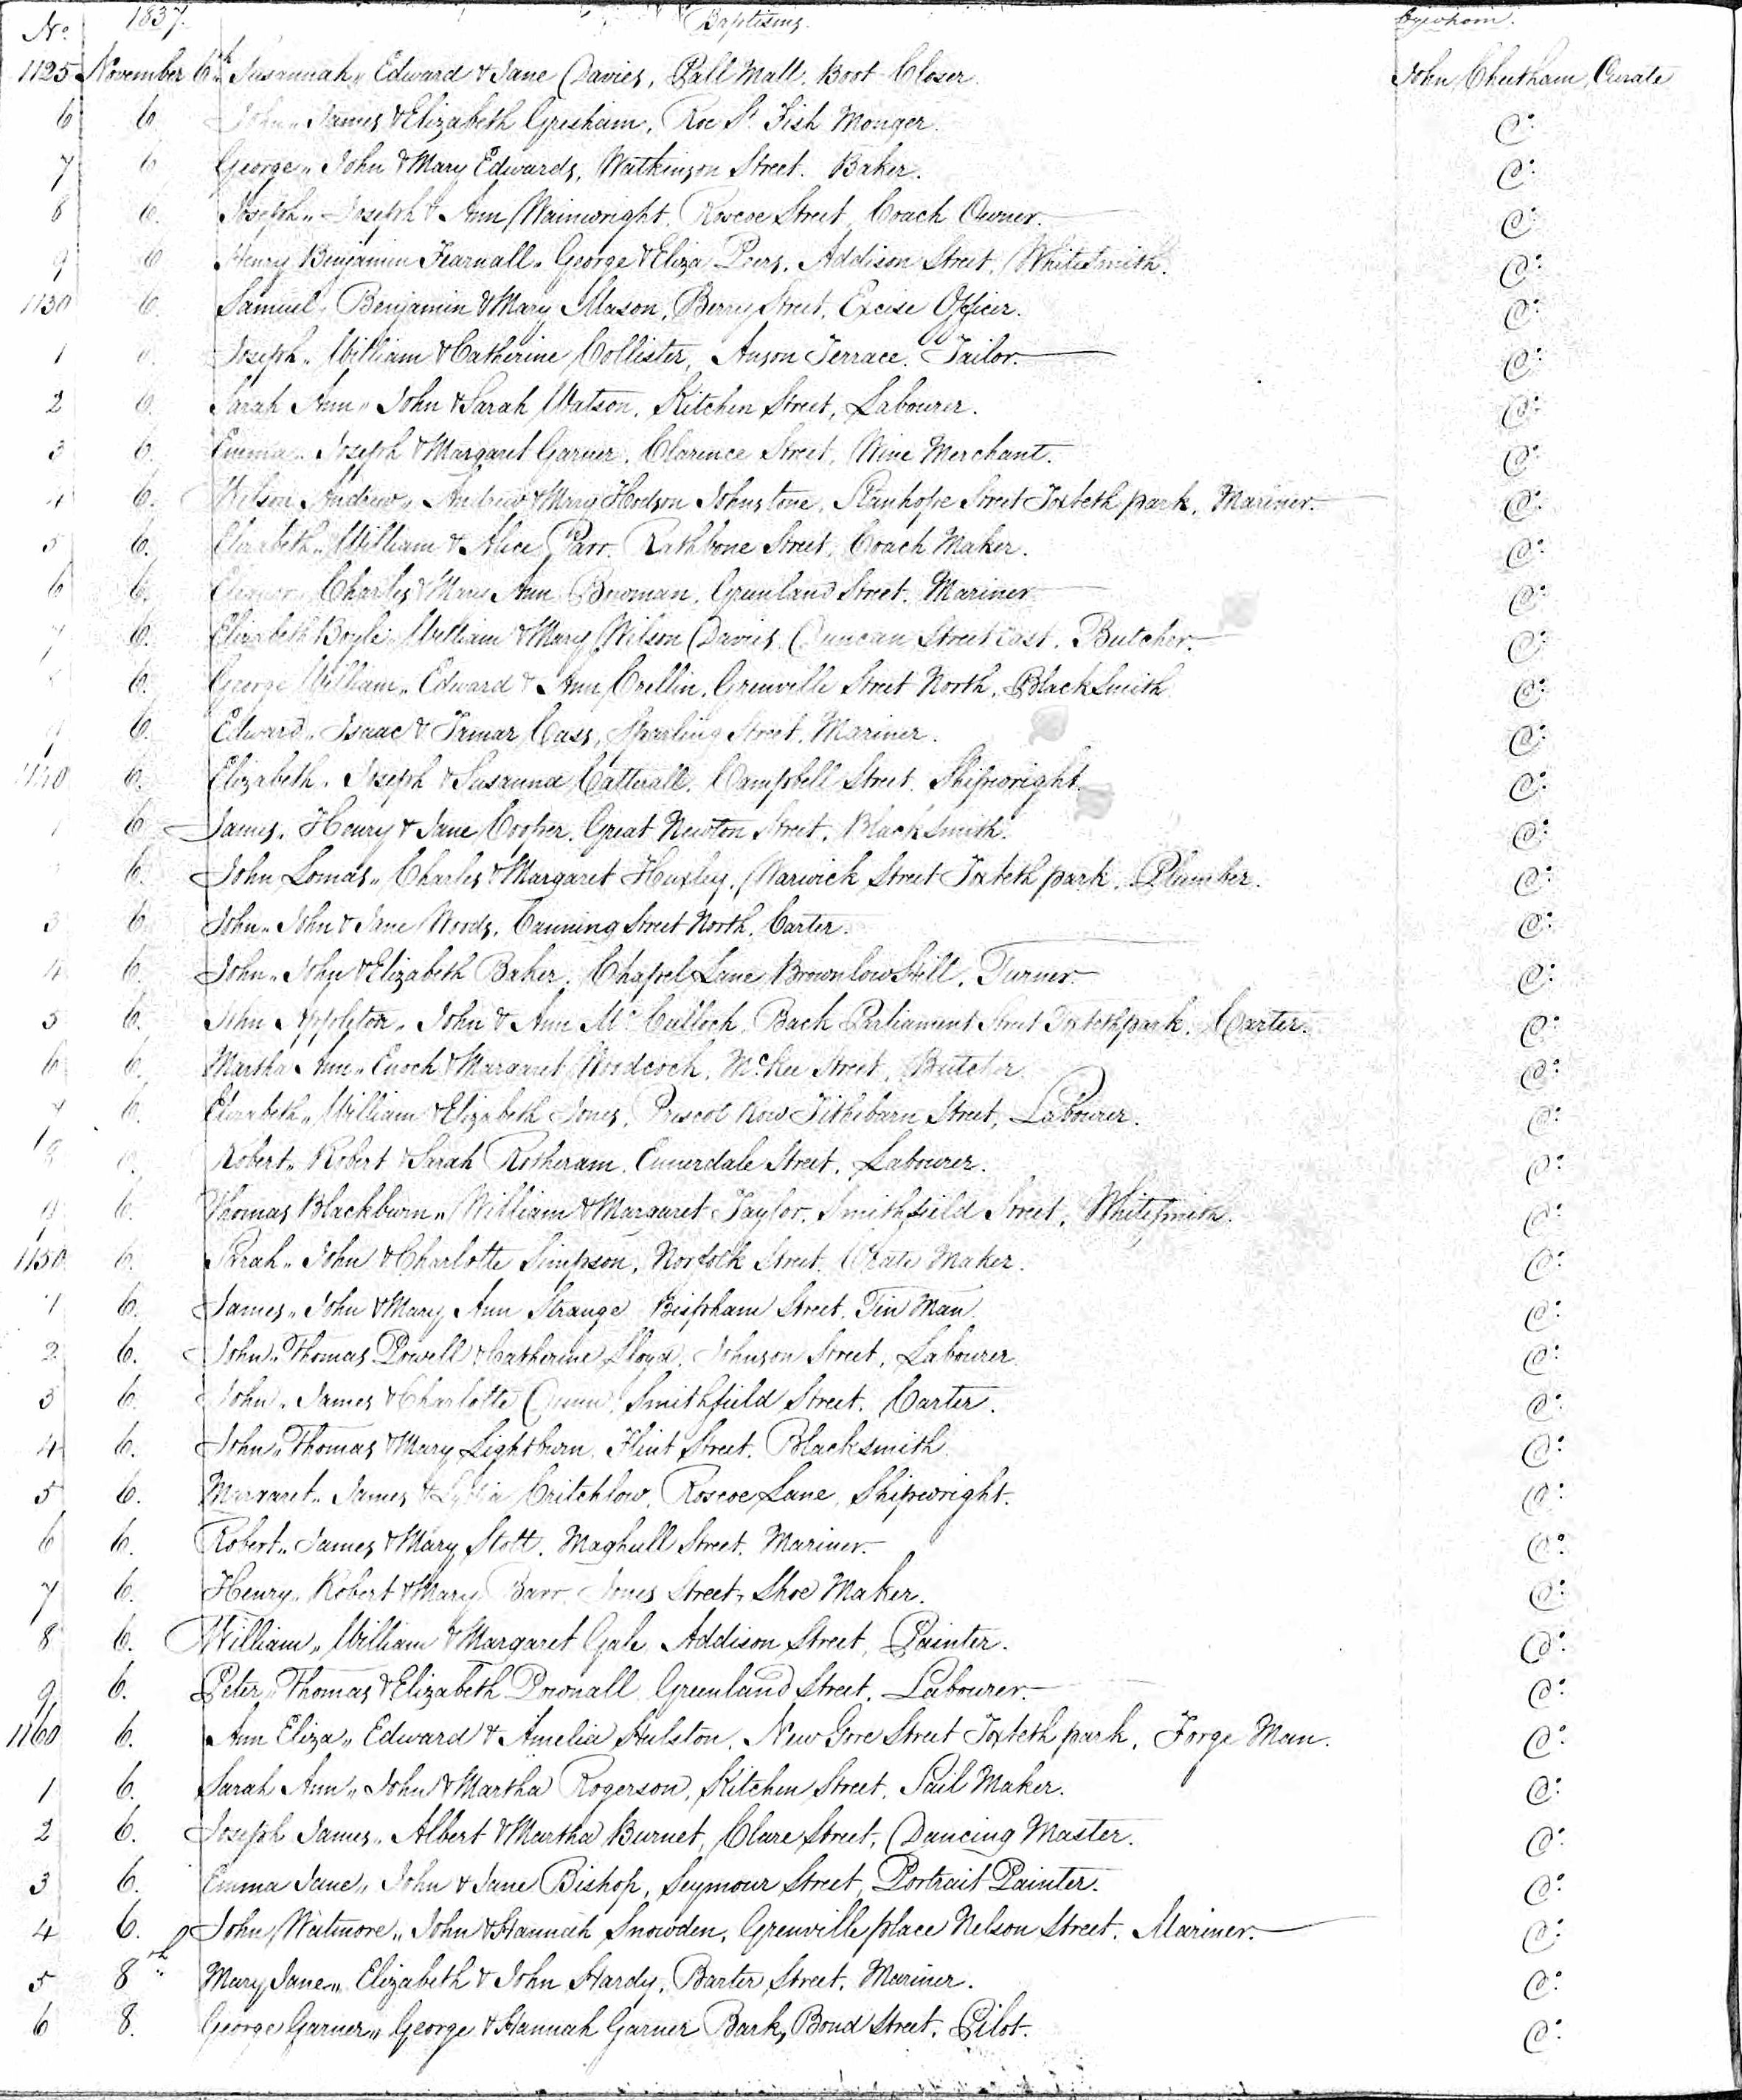 No. 1837. Baptisms. By whom.
1125 November 6th Susannah,, Edward & Jane Davies, Pall Mall. Boot Closer. John Cheetham, Curate
6 6 John,, James & Elizabeth Gresham, Roe St. Fish Monger. Do.
7 6 George,, John & Mary Edwards, Watkinson Street. Baker. Do.
8 6. Joseph,, Joseph & Ann Wainwright. Roscoe Street, Coach Owner. Do.
9 6 Henry Benjamin Fearnall,, George & Eliza Peers, Addison Street, WhiteSmith. Do.
1130 6. Samuel,, Benjamin & Mary Mason, Berry Street, Excise Officer. Do.
1 6. Joseph,, William & Catherine Collister, Anson Terrace. Tailor. Do.
2 6. Sarah Ann,, John & Sarah Watson, Kitchen Street, Labourer. Do.
3 6. Emma,, Joseph & Margaret Garner, Clarence Street, Wine Merchant. Do.
4 6. Wilson Andrew,, Andrew & Mary Hodson Johnstone, Stanhope Street Toxteth park, Mariner. Do.
5 6. Elizabeth,, William & Alice Parr. Rathbone Street, Coach Maker. Do.
6 6. Eleanor,, Charles & Mary Ann Bowman, Greenland Street. Mariner. Do.
7 6. Elizabeth Boyle,, William & Mary Wilson Davies, Duncan Street East. Butcher. Do.
8 6. George William,, Edward & Ann Crellin, Grenville Street North, BlackSmith. Do.
9 6. Edward,, Isaac & Tamar Cass, Sparling Street. Mariner. Do.
1140 6. Elizabeth,, Joseph & Susanna Catterall. Campbell Street. Shipwright. Do.
1 6 James,, Henry & Jane Cooper. Great Newton Street, BlackSmith. Do.
6. John Lomas,, Charles & Margaret Huxley, Warwick Street Toxteth park, Plumber. Do.
3 6. John,, John & Jane Woods, Canning Street North, Carter. Do.
4 6. John,, John & Elizabeth Baker, Chapel Lane Brownlow Hill, Turner. Do.
5 6. John Appleton,, John & Ann McCulloch, Back Parliament Street Toxteth park, Carter. Do.
6 6. Martha Ann,, Enoch & Margaret Woodcock, McKee Street, Butcher. Do.
7 6. Elizabeth,, William & Elizabeth Jones, Prescot Row Tithebarn Street, Labourer. Do.
8 6. Robert,, Robert & Sarah Rotheram, Ennerdale Street, Labourer. Do.
9 6. Thomas Blackburn,, William & Margaret Taylor, Smithfield Street, WhiteSmith. Do.
1150 6. Sarah,, John & Charlotte Simpson, Norfolk Street, Crate Maker. Do.
1 6. James,, John & Mary Ann Strange Bispham Street, Tin Man. Do.
2 6. John,, Thomas Powell & Catherine Lloyd, Johnson Street, Labourer. Do.
3 6. John,, James & Charlotte Dunn, Smithfield Street. Carter. Do.
4 6. John,, Thomas & Mary Lightburn, Flint Street. Blacksmith. Do.
5 6. Margaret,, James & Lydia Critchlow, Roscoe Lane, Shipwright. Do.
6 6. Robert,, James & Mary Stott, Maghull Street. Mariner. Do.
7 6. Henry,, Robert & Mary Barr, Jones Street, Shoe Maker. Do.
8 6. William,, William & Margaret Gale, Addison Street, Painter. Do.
9 6. Peter,, Thomas & Elizabeth Pownall, Greenland Street, Labourer. Do.
1160 6. Ann Eliza,, Edward & Amelia Hulston, New Gore Street Toxteth park, Forge Man. Do.
1 6. Sarah Ann,, John & Martha Rogerson, Kitchen Street, Sail Maker. Do.
2 6. Joseph James,, Albert & Martha Burnet, Clare Street, Dancing Master. Do.
3 6. Emma Jane,, John & Jane Bishop, Seymour Street, Portrait Painter. Do.
4 6. John Watmore,, John & Hannah Snowden, Grenville place Nelson Street. Mariner. Do.
5 8th Mary Jane,, Elizabeth & John Hardy, Barter Street, Mariner. Do.
6 8. George Garner,, George & Hannah Garner Bark, Bond Street, Pilot. Do.